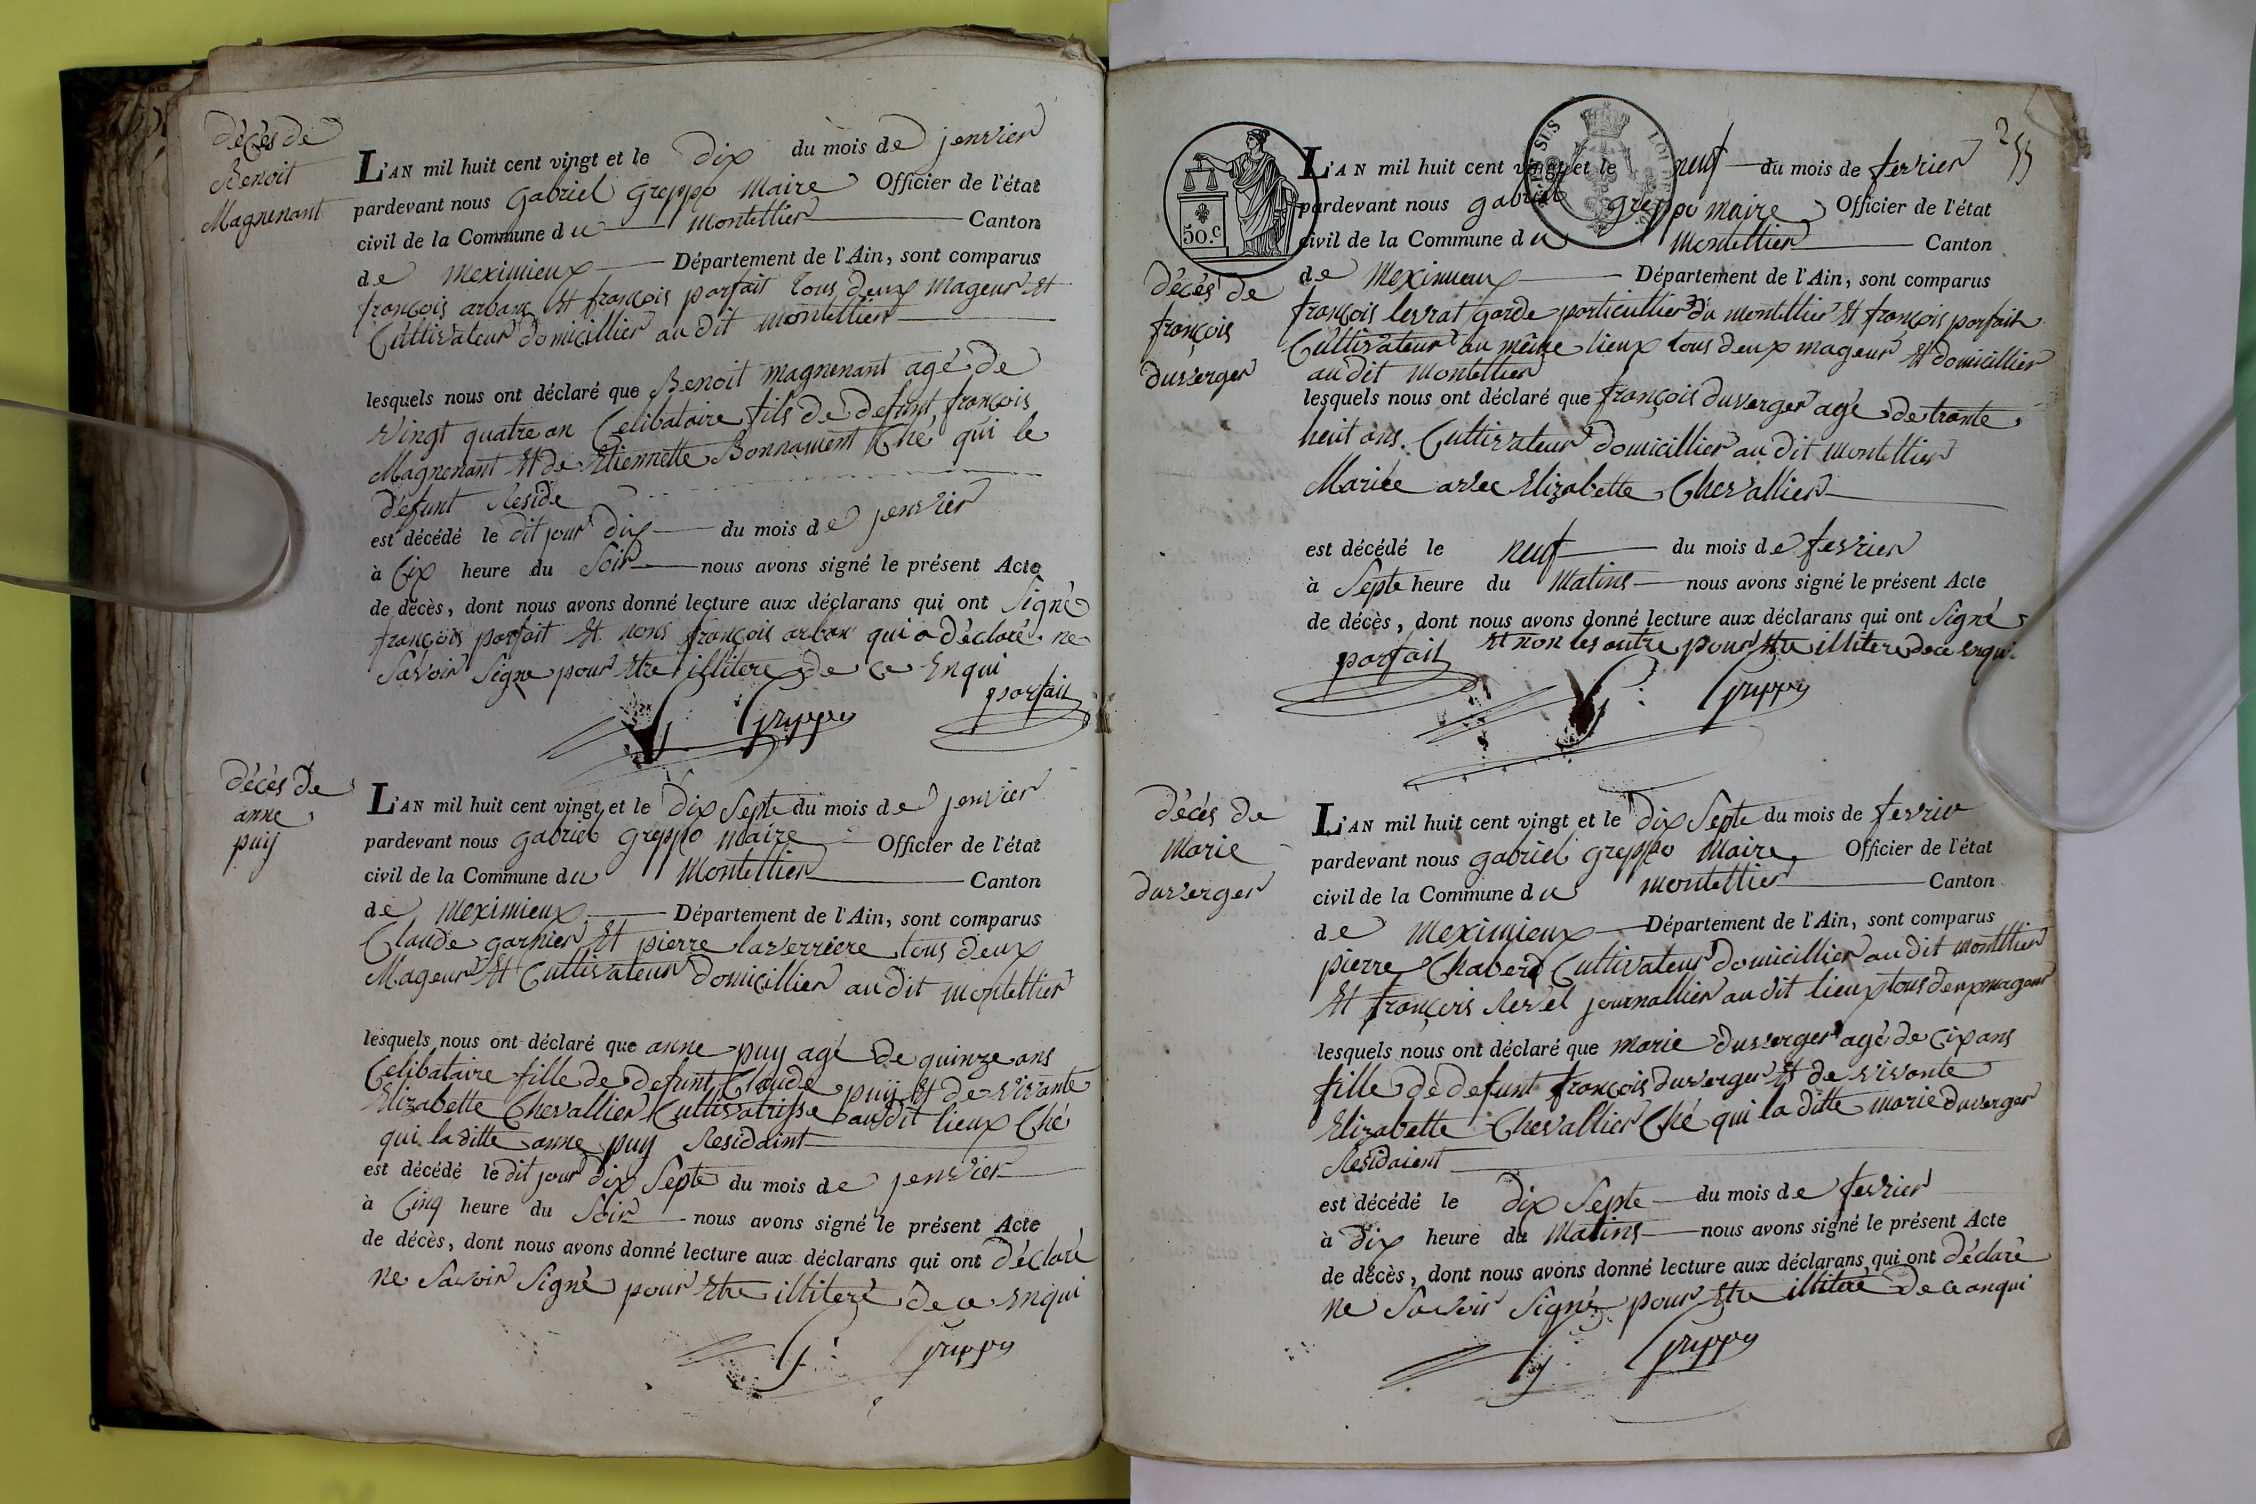 décès de
Benoit
Magnenant
L'AN mil huit cent vingt et le dix du mois de jenvier
pardevant nous gabriel greppo maire Officier de l'état
civil de la Commune du montellier Canton
de meximieux Département de l'Ain, sont comparus
françois arban Et françois parfait tous deux mageur Et
Cultivateur domicillier au dit montellier
lesquels nous ont déclaré que Benoit magnenant agé de
vingt quatre an Celibataire fils de defunt françois
Magnenant Et de Etiennette Bonnament Ché qui le
défunt Reside
est décédé le dit jour dix du mois de jenvier
à Cix heure du Soir nous avons signé le présent Acte
de décès, dont nous avons donné lecture aux déclarans qui ont Signé
françois parfait Et nons françois arban qui a déclaré ne
Savoir Signe pour Etre illitere de ce Enqui
parfait
G: Greppo
décès de
anne
puy
L'AN mil huit cent vingt et le dix Septe du mois de jenvier
pardevant nous gabriel greppo maire Officier de l'état
civil de la Commune du Montellier Canton
de meximieux Département de l'Ain, sont comparus
Claude garnier Et pierre laverriere tous deux
Mageur Et Cultivateur domicillier au dit montellier
lesquels nous ont déclaré que anne puy agé de quinze ans
Celibataire fille de defunt Claude puy Et de vivante
Elizabette Chevallier Cultivatrisse audit lieux Ché
qui la ditte anne puy Residaint
est décédé le dit jour dix Septe du mois de jenvier
à Cinq heure du Soir nous avons signé le présent Acte
de décès, dont nous avons donné lecture aux déclarans qui ont déclaré
ne Savoir Signé pour Etre illiteré de ce Enqui
G: Greppo
255
50.c
décés de
françois
duverger
L'AN mil huit cent vingt et le neuf du mois de fevrier
pardevant nous gabriel greppo maire Officier de l'état
civil de la Commune du montellier Canton
de Meximieux Département de l'Ain, sont comparus
françois levrat garde particullier du montellier Et françois parfait
Cultivateur au même lieux tous deux mageur Et domicillier
au dit montellier
lesquels nous ont déclaré que françois duverger agé de trante
heuit ans. Cultivateur domicillier au dit montellier
Mariée avec Elizabette Chevallier
est décédé le neuf du mois de fevrier
à Septe heure du Matins nous avons signé le présent Acte
de décès, dont nous avons donné lecture aux déclarans qui ont Signé
parfait Et non les autre pour Etre illitere de ce Enqui
G: Greppo
décés de
Marie
duverger
L'AN mil huit cent vingt et le dix Septe du mois de fevrie
pardevant nous gabriel greppo Maire Officier de l'état
civil de la Commune du montellier Canton
de Meximieux Département de l'Ain, sont comparus
pierre Chaberd Cultivateur domicillier au dit montellier
Et françois Revel journallier au dit lieux tous deux mageur
lesquels nous ont déclaré que marie duverger agé de Cix ans
fille de defunt françois duverger Et de vivante
Elizabette Chevallier Ché qui la ditte marie duverger
Residaient
est décédé le dix Septe du mois de fevrier
à dix heure du Matins nous avons signé le présent Acte
de décès, dont nous avons donné lecture aux déclarans qui ont déclaré
ne Savoir Signé pour Etre illitere de ce anqui
G: Greppo